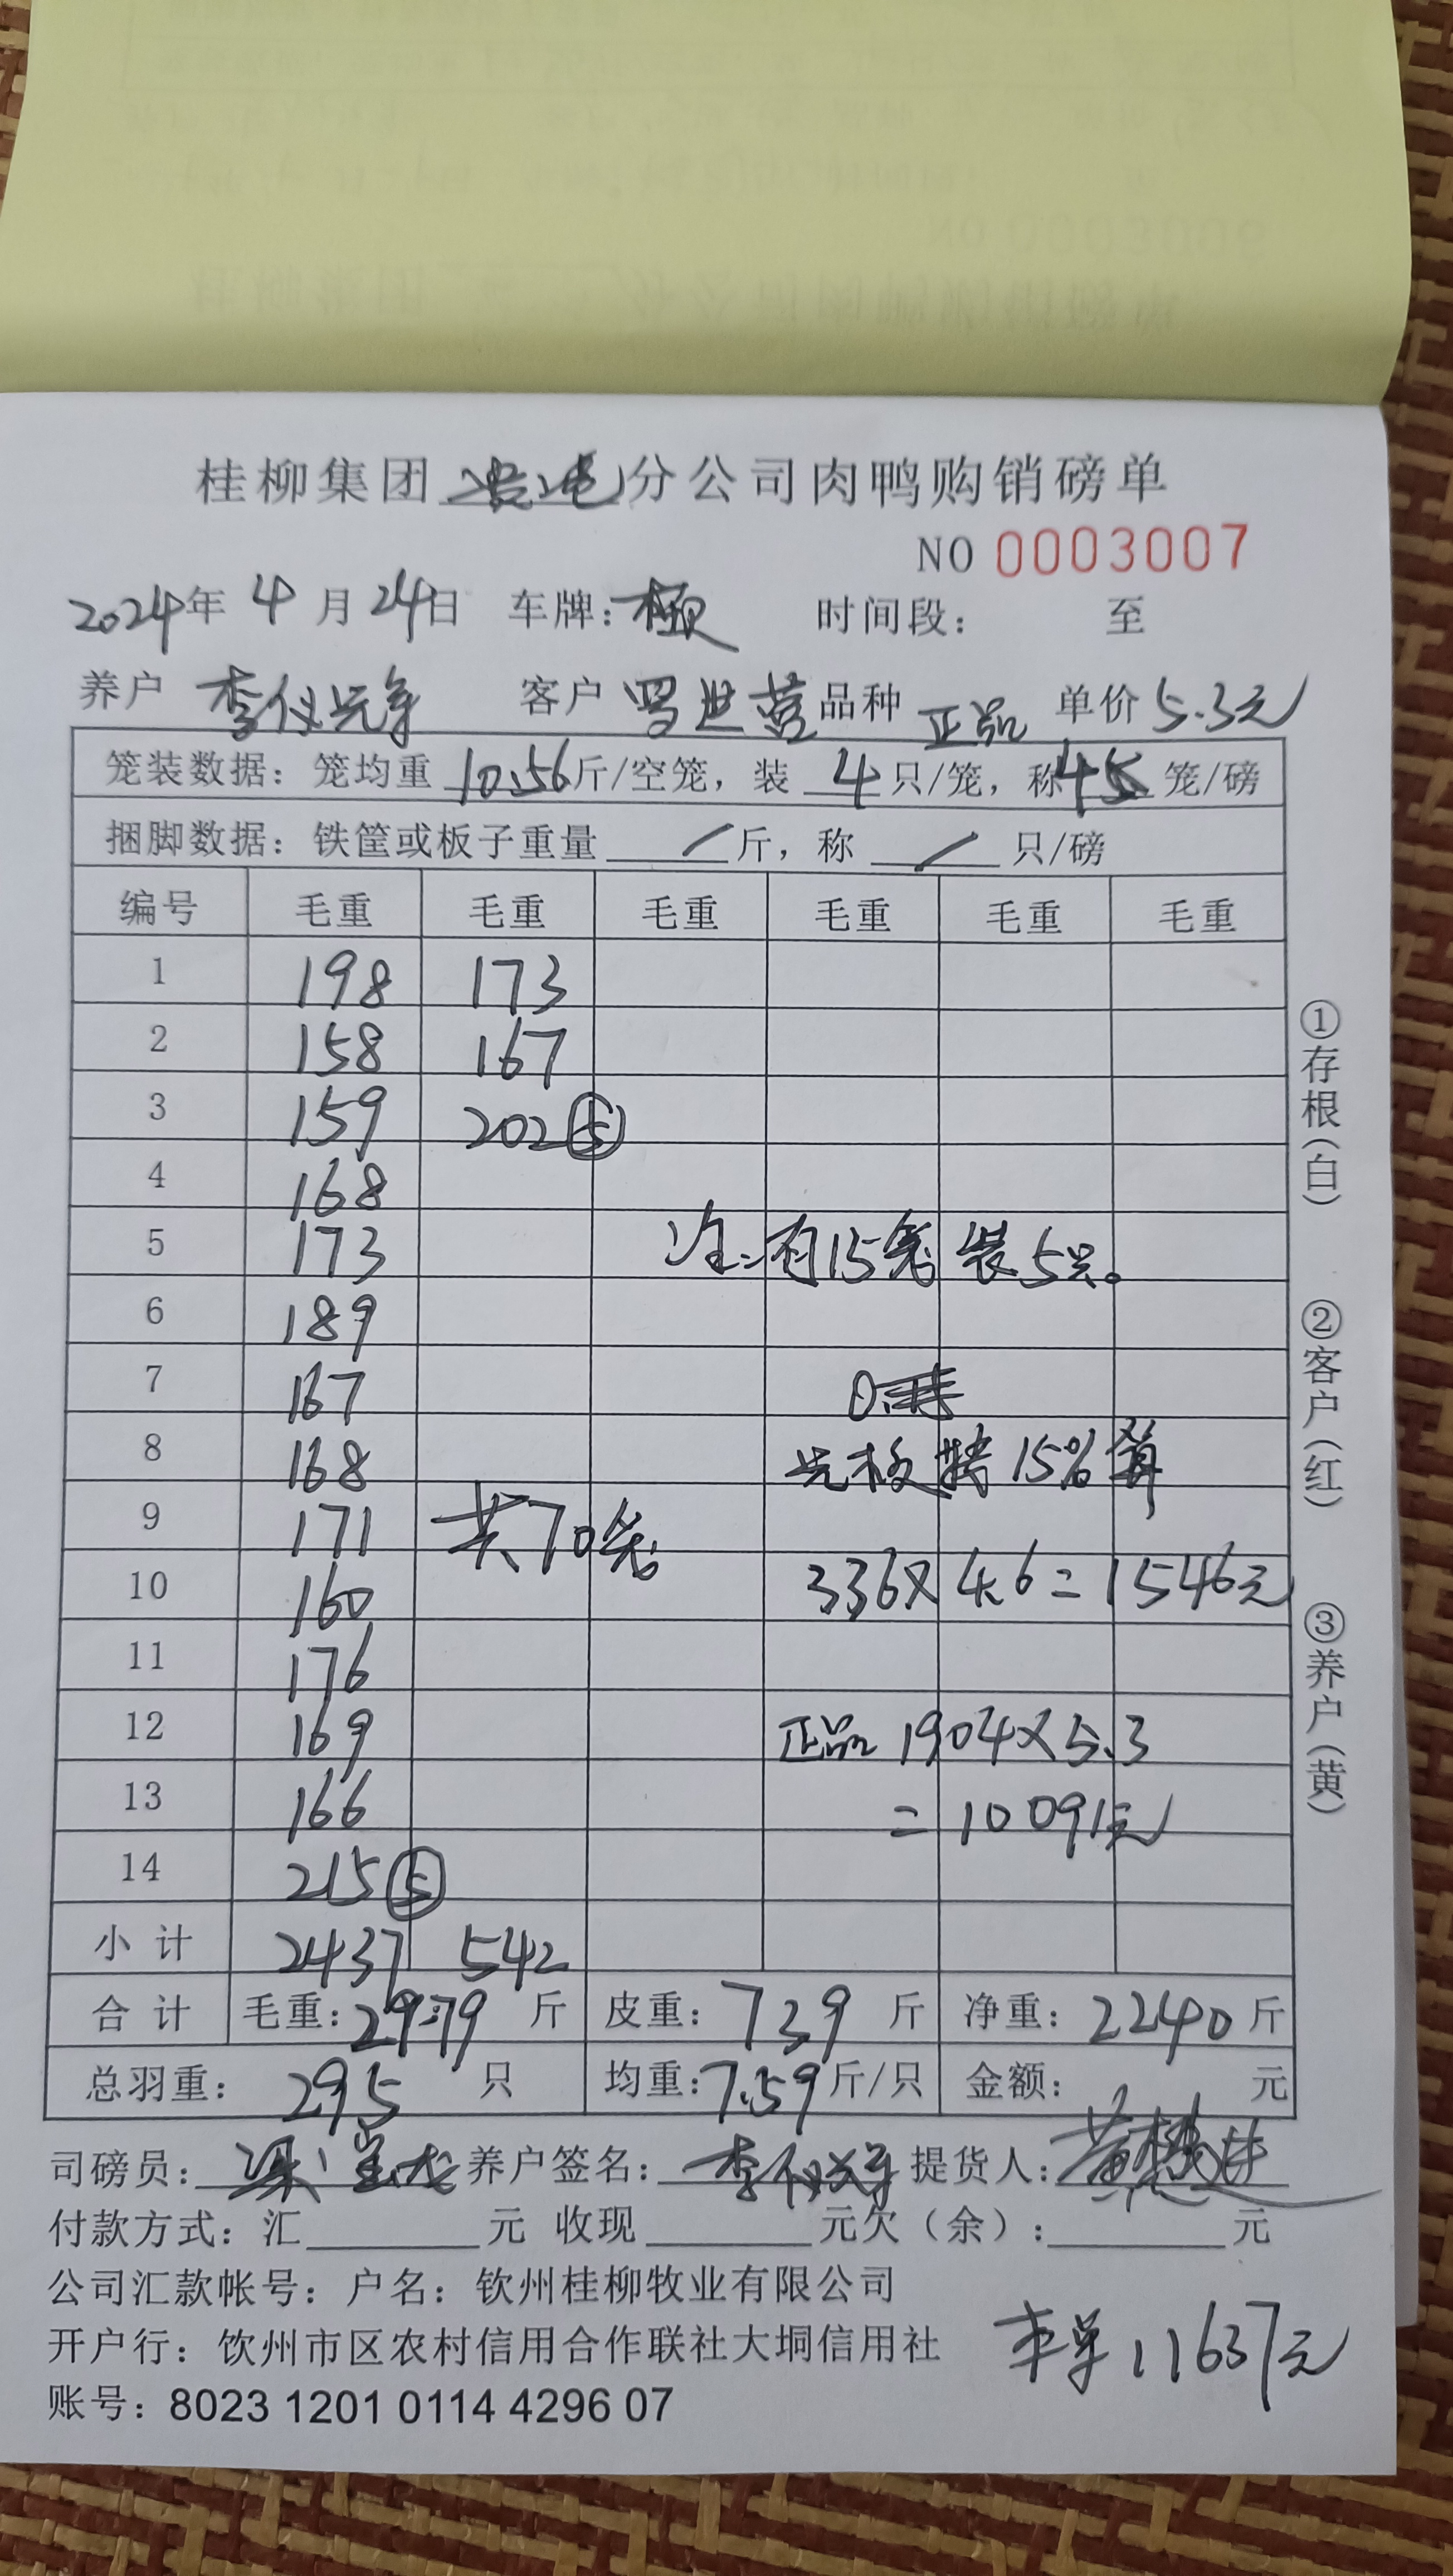 桂柳集团 分公司肉鸭购销磅单
NO 0003007
2024年 4 月 24日 车牌: 时间段: 至
养户 李仪 客户 罗世营 品种 正品 单价 5.3元
笼装数据: 笼均重 10.56 斤/空笼, 装 4 只/笼, 称 4 5 笼/磅
捆脚数据: 铁筐或板子重量 / 斤, 称 / 只/磅
编号 毛重 毛重 毛重 毛重 毛重 毛重
1 198 173
2 158 167
3 159 202⑤
4 168
5 173 注:有15笼 装5只。
6 189
7 167
8 168 15%算
9 171 共70笼
10 160 336×4.6=1546元
11 176
12 169 正品 1904×5.3
13 166 =10091元
14 215⑤
小计 2437 542
合计 毛重: 2979 斤 皮重: 739 斤 净重: 2240 斤
总羽重: 295 只 均重: 7.59 斤/只 金额: 元
司磅员: 养户签名: 李仪 提货人: 黄
付款方式: 汇 元 收现 元欠(余): 元
公司汇款帐号: 户名: 钦州桂柳牧业有限公司
开户行: 饮州市区农村信用合作联社大垌信用社
本单11637元
账号: 8023 1201 0114 4296 07
①存根(白)
②客户(红)
③养户(黄)